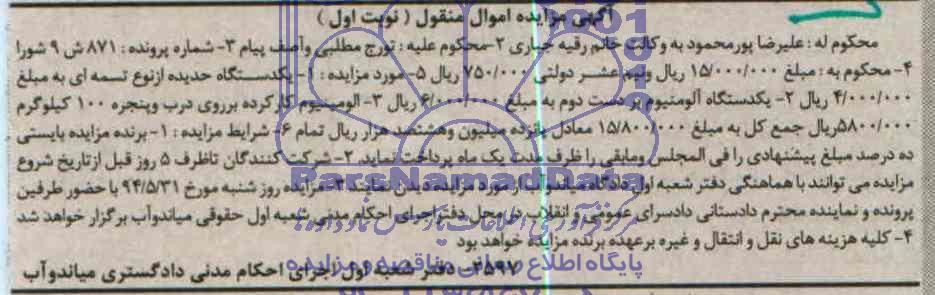 آگهی مزایده اموال منقول ( نوبت اول )
محکوم له : علیرضا پورمحمود به وکالت خانم رقیه جباری ۲-محکوم علیه : تورج مطلبی وآصف پیام ۳- شماره پرونده : ۸۷۱ ش ۹ شورا
۴- محکوم به : مبلغ ۱۵/۰۰۰/۰۰۰ ریال ونیم عشر دولتی ۷۵۰/۰۰۰ ریال ۵- مورد مزایده : ۱- یکدستگاه حدیده ازنوع تسمه ای به مبلغ
۴/۰۰۰/۰۰۰ ریال ۲- یکدستگاه آلومنیوم بر دست دوم به مبلغ ۶/۰۰۰/۰۰۰ ریال ۳- الومینیوم کارکرده برروی درب وپنجره ۱۰۰ کیلوگرم
۵۸۰۰/۰۰۰ریال جمع کل به مبلغ ۱۵/۸۰۰/۰۰۰ معادل پانزده میلیون وهشتصد هزار ریال تمام ۶- شرایط مزایده : ۱- برنده مزایده بایستی
ده درصد مبلغ پیشنهادی را فی المجلس ومابقی را ظرف مدت یک ماه پرداخت نماید. ۲- شرکت کنندگان تاظرف ۵ روز قبل ازتاریخ شروع
مزایده می توانند با هماهنگی دفتر شعبه اول دادگاه میاندوآب از مورد مزایده دیدن نمایند ۳- مزایده روز شنبه مورخ ۹۴/۵/۳۱ با حضور طرفین
پرونده و نماینده محترم دادستانی دادسرای عمومی و انقلاب در محل دفتراجرای احکام مدنی شعبه اول حقوقی میاندوآب برگزار خواهد شد
۴- کلیه هزینه های نقل و انتقال و غیره برعهده برنده مزایده خواهد بود
۲۵۹۷- دفتر شعبه اول اجرای احکام مدنی دادگستری میاندوآب
ParsNamadData
پایگاه اطلاع رسانی مناقصه و مزایده